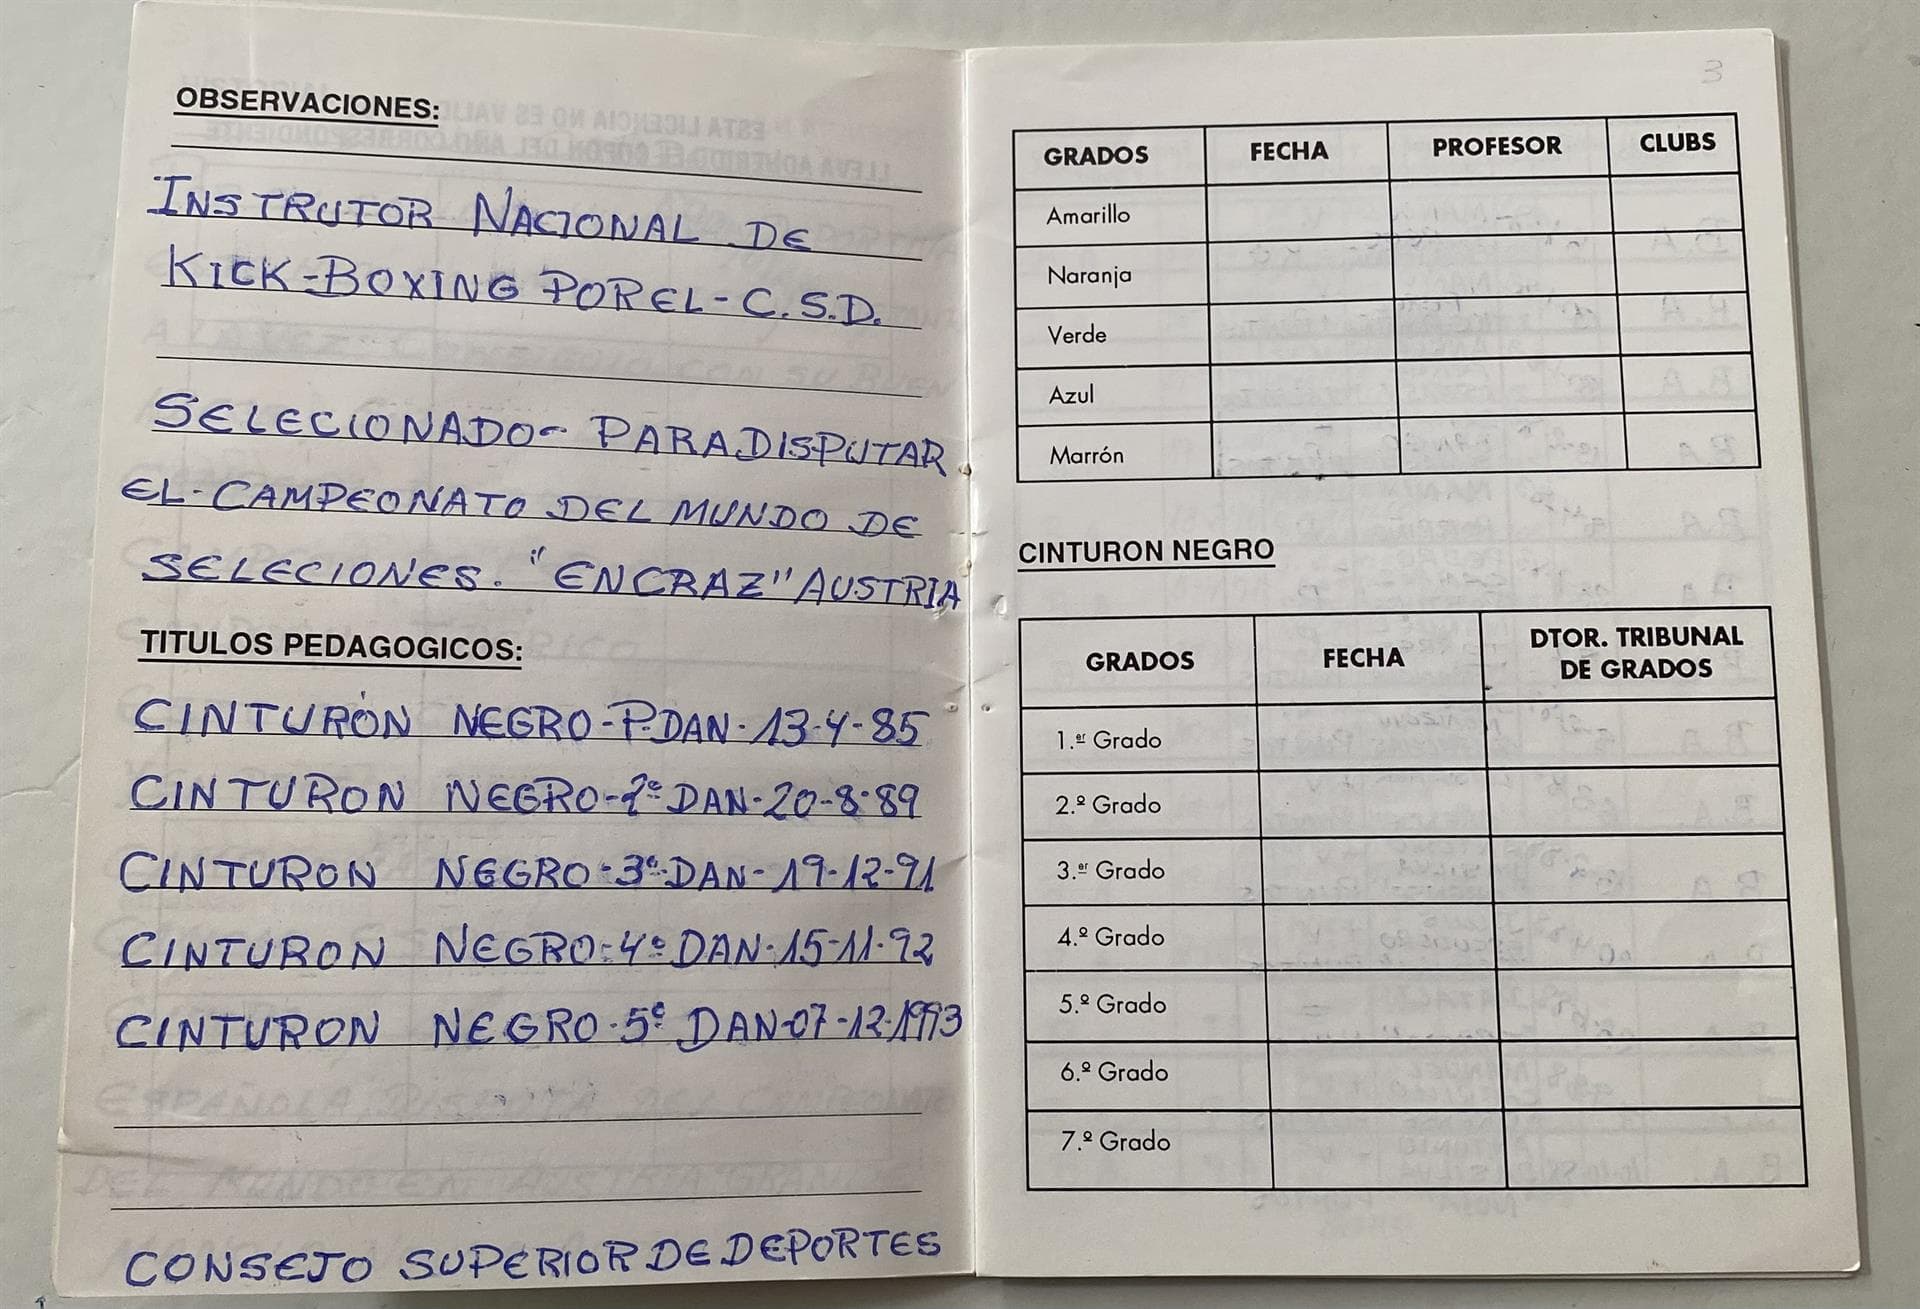 OBSERVACIONES:
INSTRUTOR NACIONAL DE
KICK-BOXING POR EL - C.S.D.
SELECIONADO- PARA DISPUTAR
EL- CAMPEONATO DEL MUNDO DE
SELECIONES. "ENCRAZ" AUSTRIA
TITULOS PEDAGOGICOS:
CINTURÓN NEGRO-P.DAN-13-4-85
CINTURON NEGRO-2º DAN-20-8-89
CINTURON NEGRO-3º DAN-19-12-91
CINTURON NEGRO-4º DAN-15-11-92
CINTURON NEGRO-5º DAN-07-12-1993
CONSEJO SUPERIOR DE DEPORTES
3
GRADOS FECHA PROFESOR CLUBS
Amarillo
Naranja
Verde
Azul
Marrón
CINTURON NEGRO
GRADOS FECHA DTOR. TRIBUNAL
DE GRADOS
1.er Grado
2.º Grado
3.er Grado
4.º Grado
5.º Grado
6.º Grado
7.º Grado